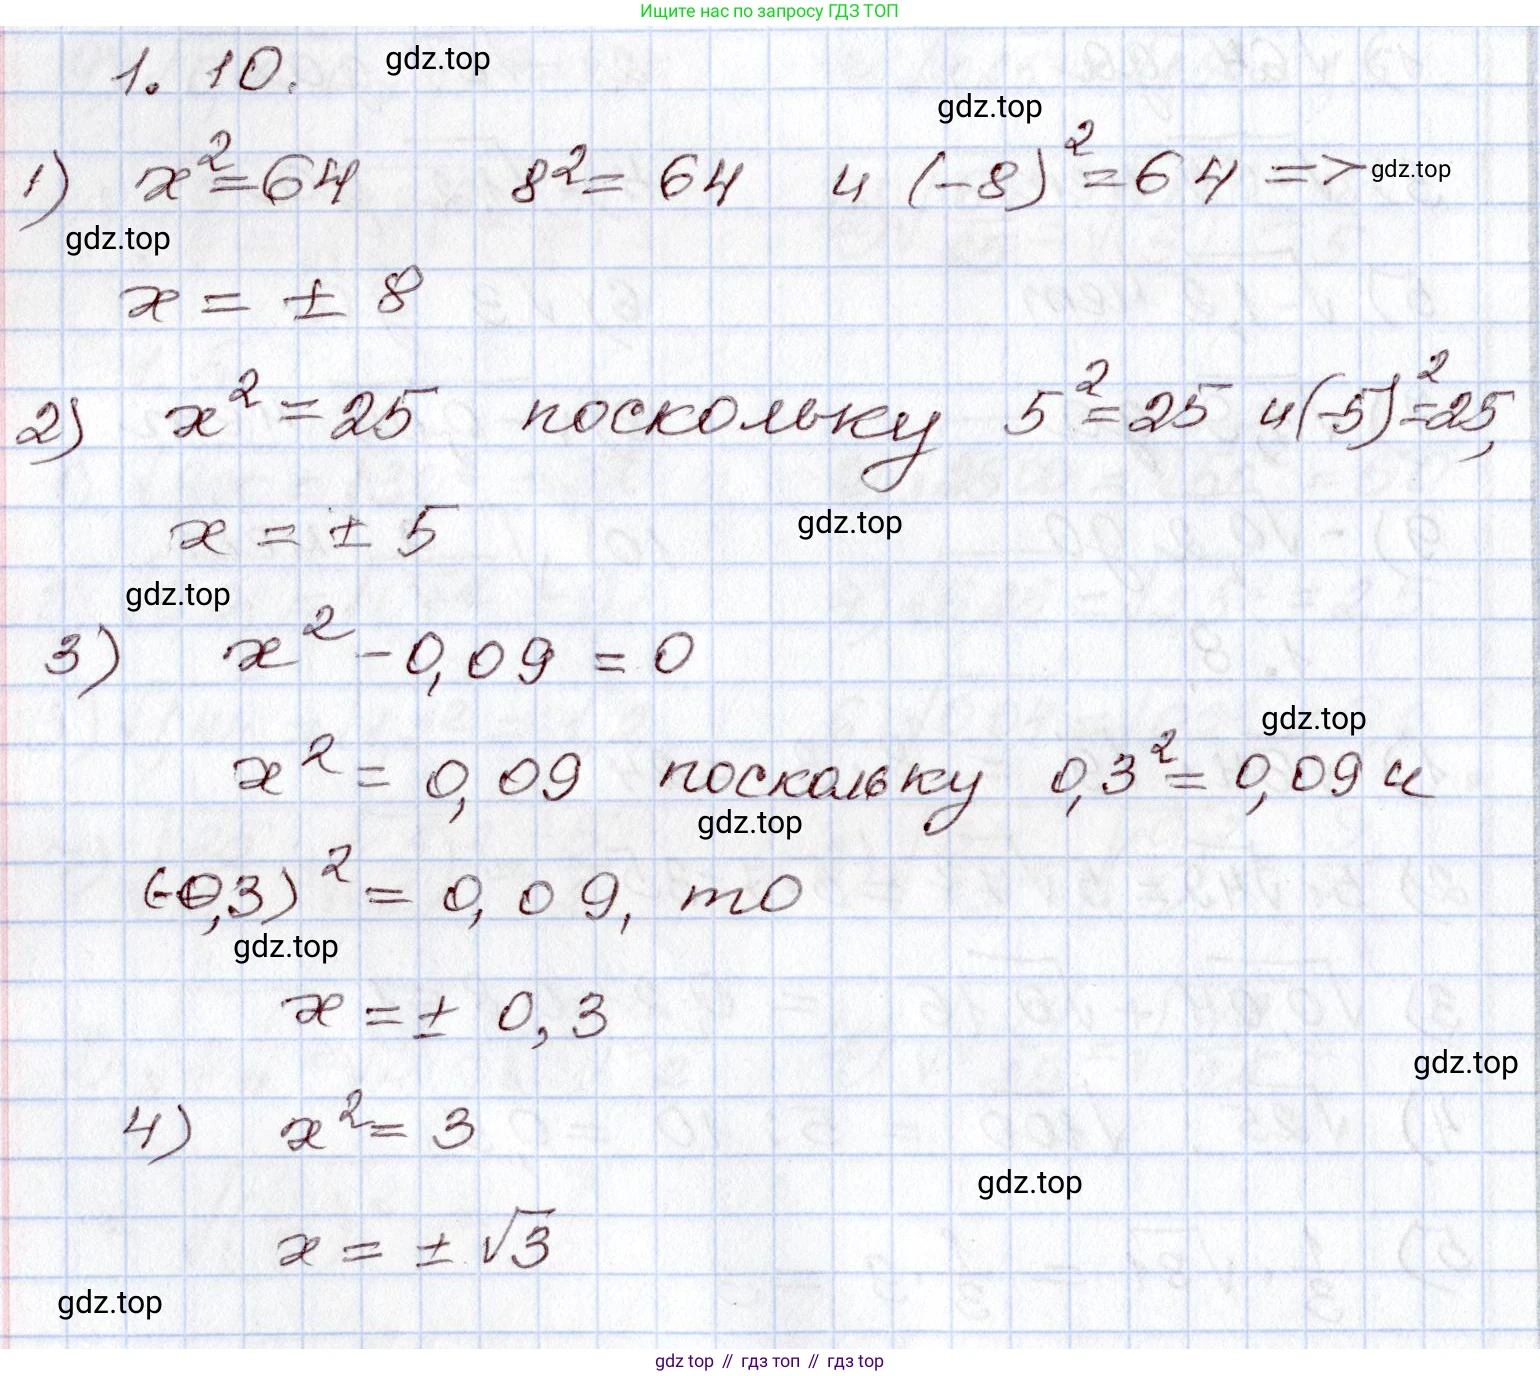 Ищите нас по запросу ГДЗ ТОП
1. 10.
gdz.top
gdz.top
1) x² = 64 8² = 64 и (-8)² = 64 =>
gdz.top
gdz.top
x = ± 8
2) x² = 25 поскольку 5² = 25 и (-5)² = 25,
x = ± 5
gdz.top
gdz.top
3) x² - 0,09 = 0
gdz.top
x² = 0,09 поскольку 0,3² = 0,09 и
gdz.top
(-0,3)² = 0,09, то
gdz.top
x = ± 0,3
gdz.top
4) x² = 3
gdz.top
x = ± √3
gdz.top
gdz top // гдз топ // gdz top